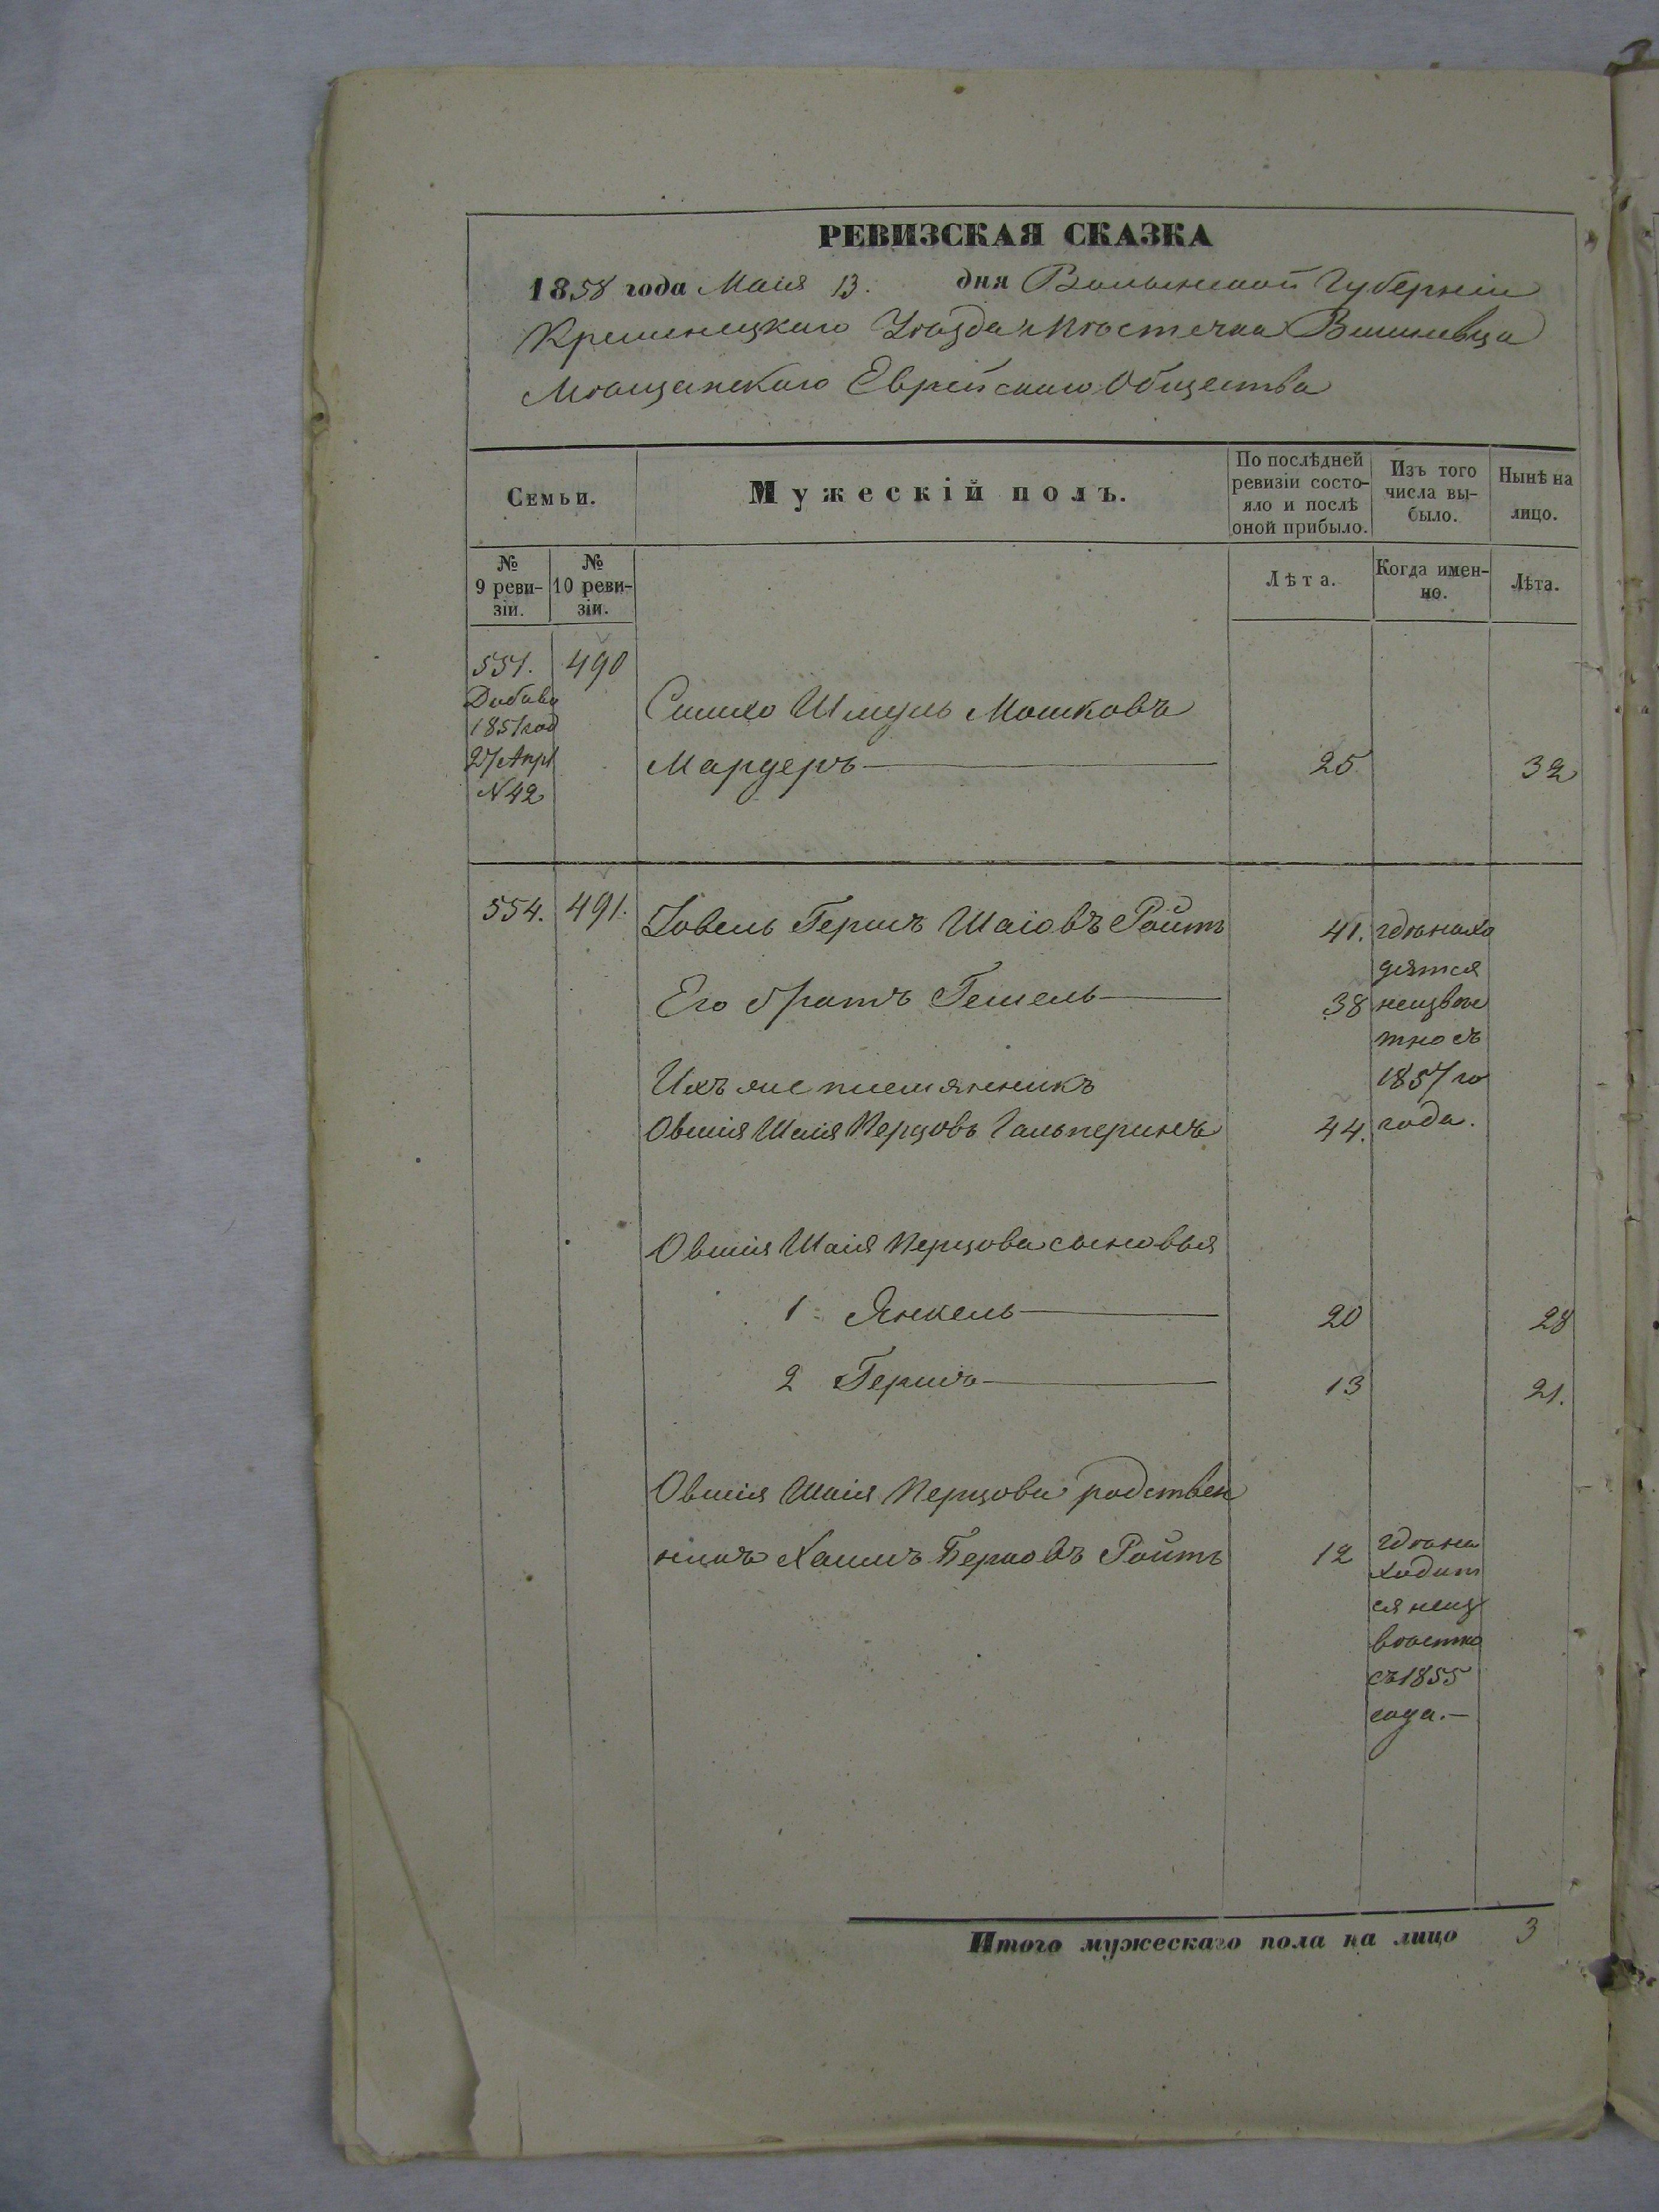 РЕВИЗСКАЯ СКАЗКА
1858 года Маія 13. дня Волынской Губерніи
Кременецкаго Уѣзда Мѣстечка Вишневца
Мѣщанскаго Еврейскаго Общества
Семьи.
Мужескій полъ.
По послѣдней
ревизіи состо-
яло и послѣ
оной прибыло.
Изъ того
числа вы-
было.
Нынѣ на
лицо.
№
9 реви-
зіи.
№
10 реви-
зіи.
Лѣта.
Когда имен-
но.
Лѣта.
551. 490
1851 год
27 Апрл
N 42
Симхо Шмуль Мошковъ
Мардеръ 25 32
554. 491. Іовель Гершъ Шаіовъ Ройтъ 41.
Его братъ Гешель 38
Ихъ же племянникъ
Овшія Шаія Перцовъ Гальперинъ 44.
гдѣ нахо
дятся
неизвѣс
тно съ
1857 го
года.
Овшія Шаія Перцова сыновья
1 Янкель 20 28
2 Гершъ 13 21.
Овшія Шаія Перцова родствен
никъ Хаимъ Берковъ Ройтъ 12
гдѣ на
ходит
ся неиз
вѣстно
съ 1855
года.—
Итого мужескаго пола на лицо 3